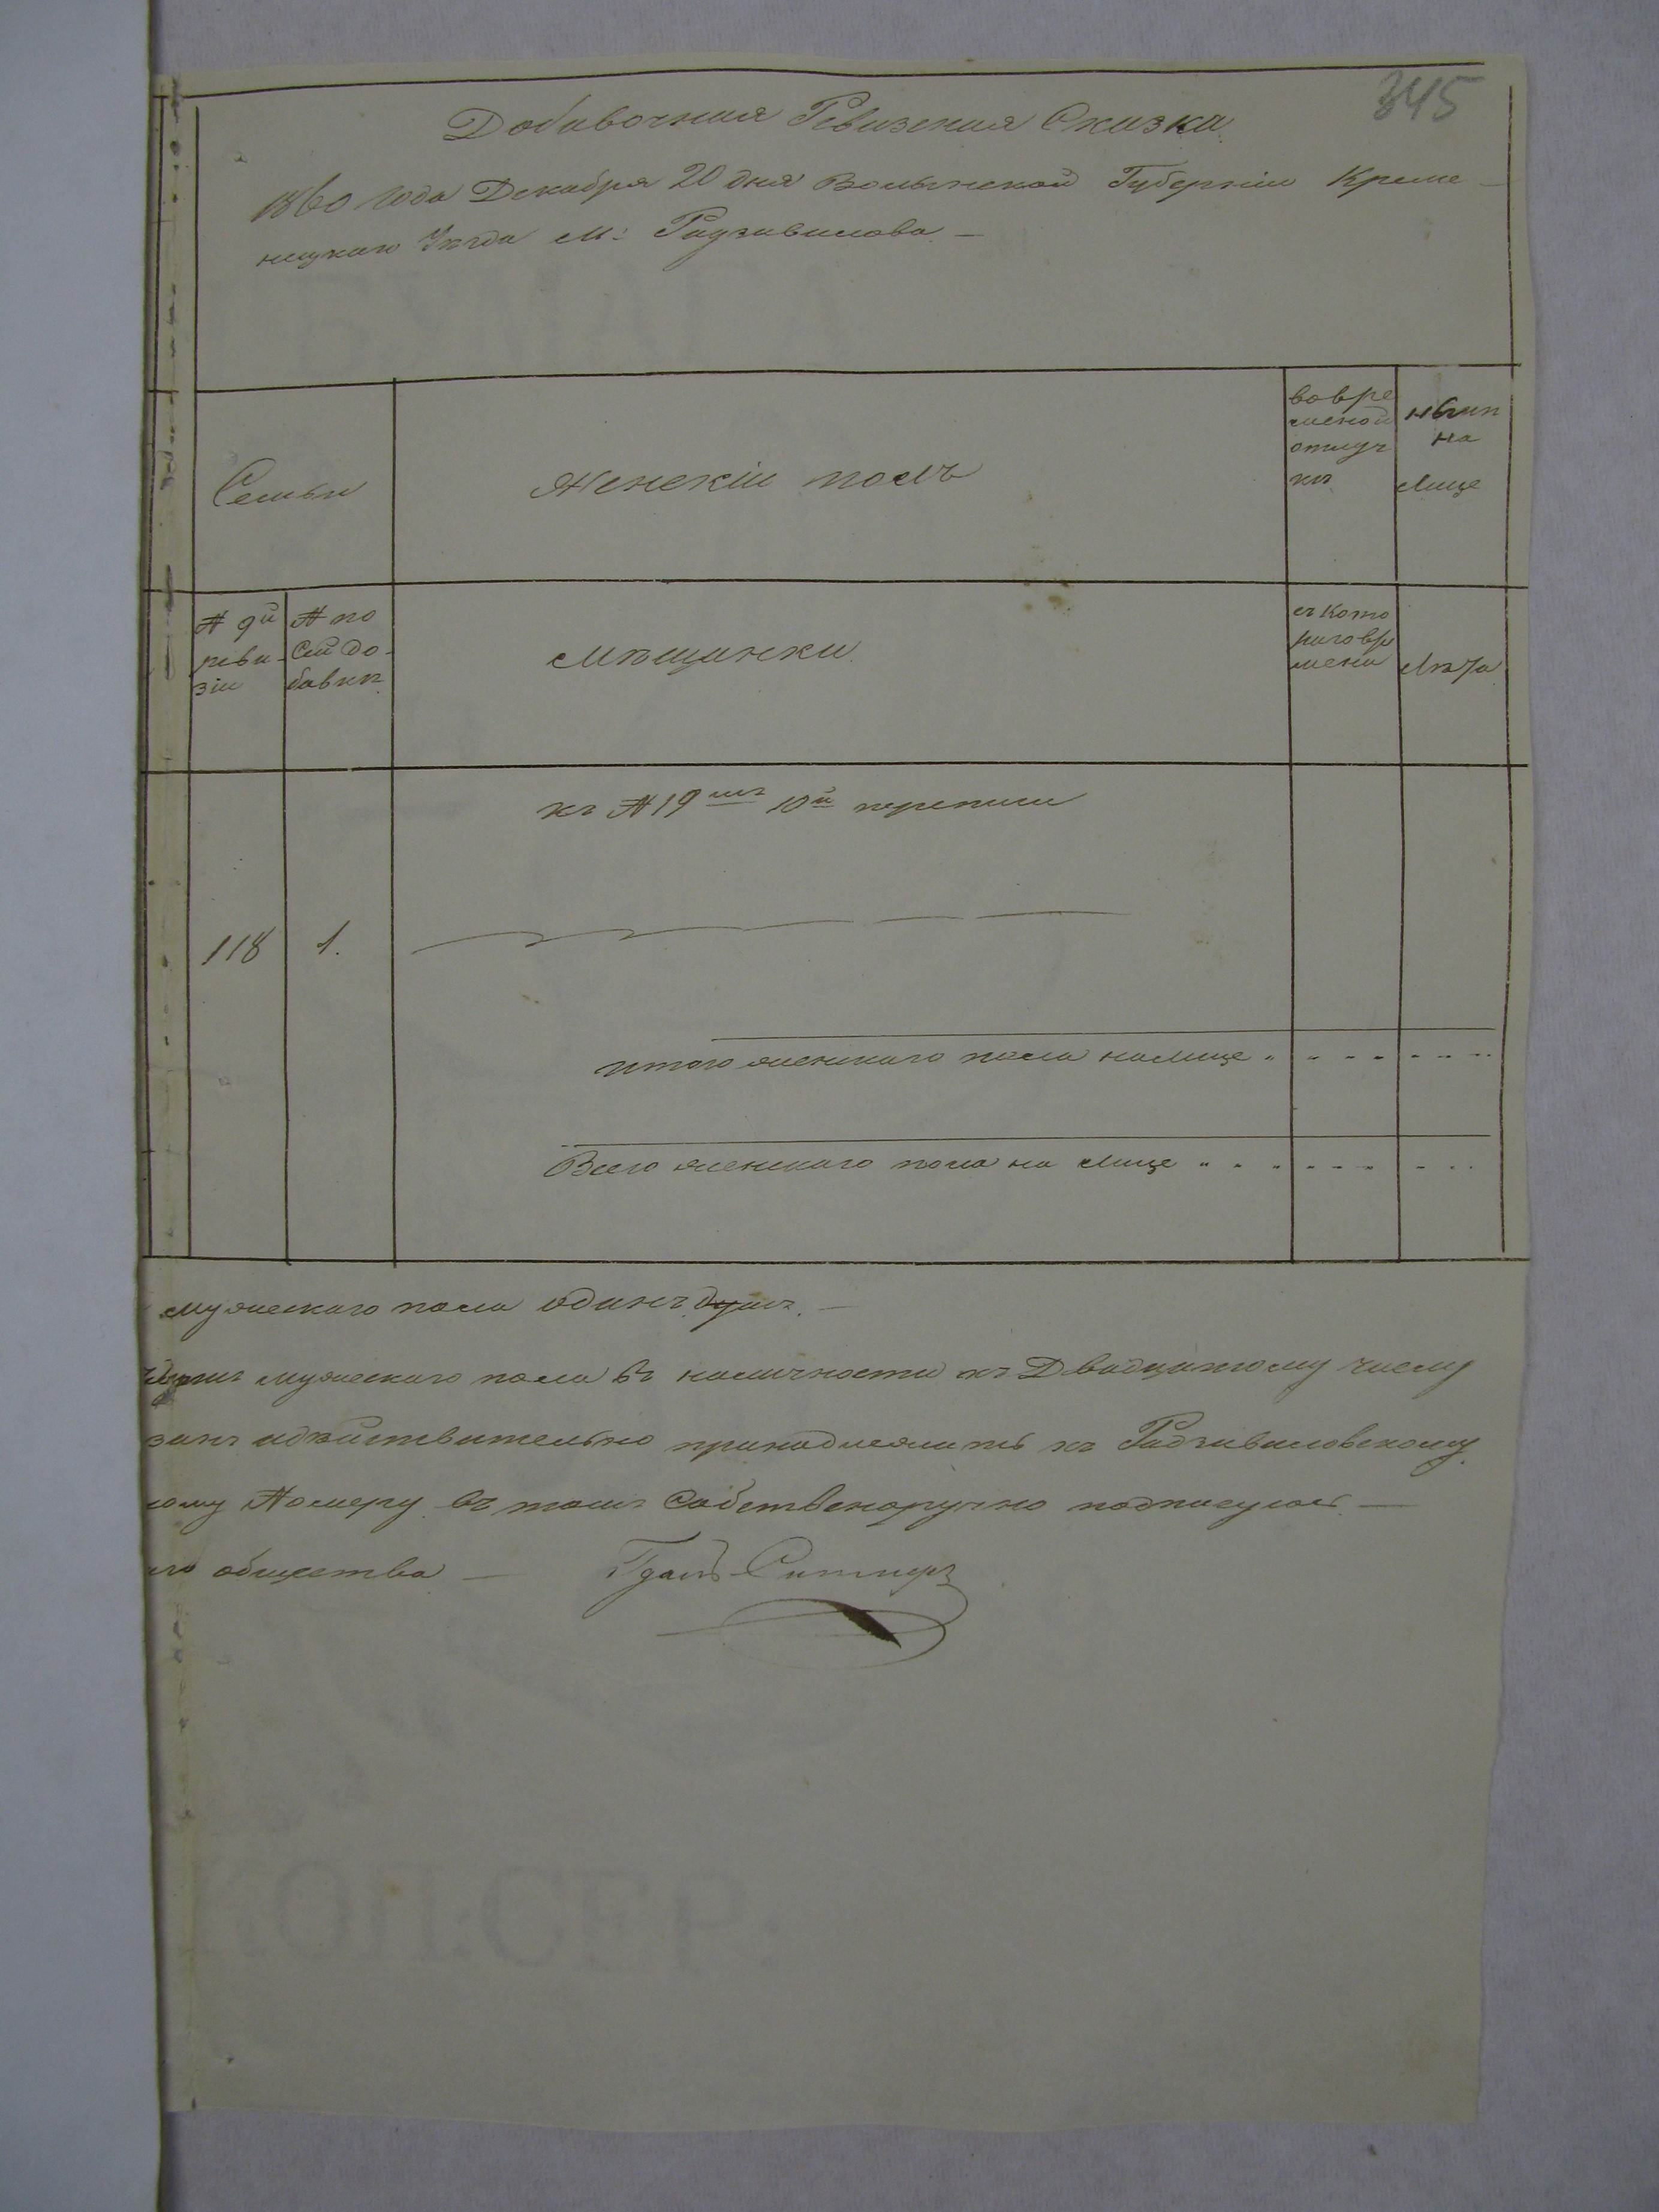 345
Добавочная Ревизская Сказка
1860 года Декабря 20 дня Волынской Губерніи Креме-
нецкаго Уѣзда М: Радзивилова —
Семьи
Женскій полъ
во вре
менной
отлуч
кѣ
нынѣ
на
лице
№ 9й
реви-
зіи
№ по
Сей до-
бавкѣ
Мѣщанки
съ кото
раго вре
мени
Лѣта
къ № 19мъ 10й переписи
118
1.
итого женскаго пола налице
Всего женскаго пола на лице
мужескаго пола одинъ душъ. —
мужескаго пола въ наличности къ Двадцатому числу
дѣйствительно принадлежитъ къ Радзивиловскому
Номеру въ томъ Собственоручно подписуюсъ —
общества —
КОП:СЕР: